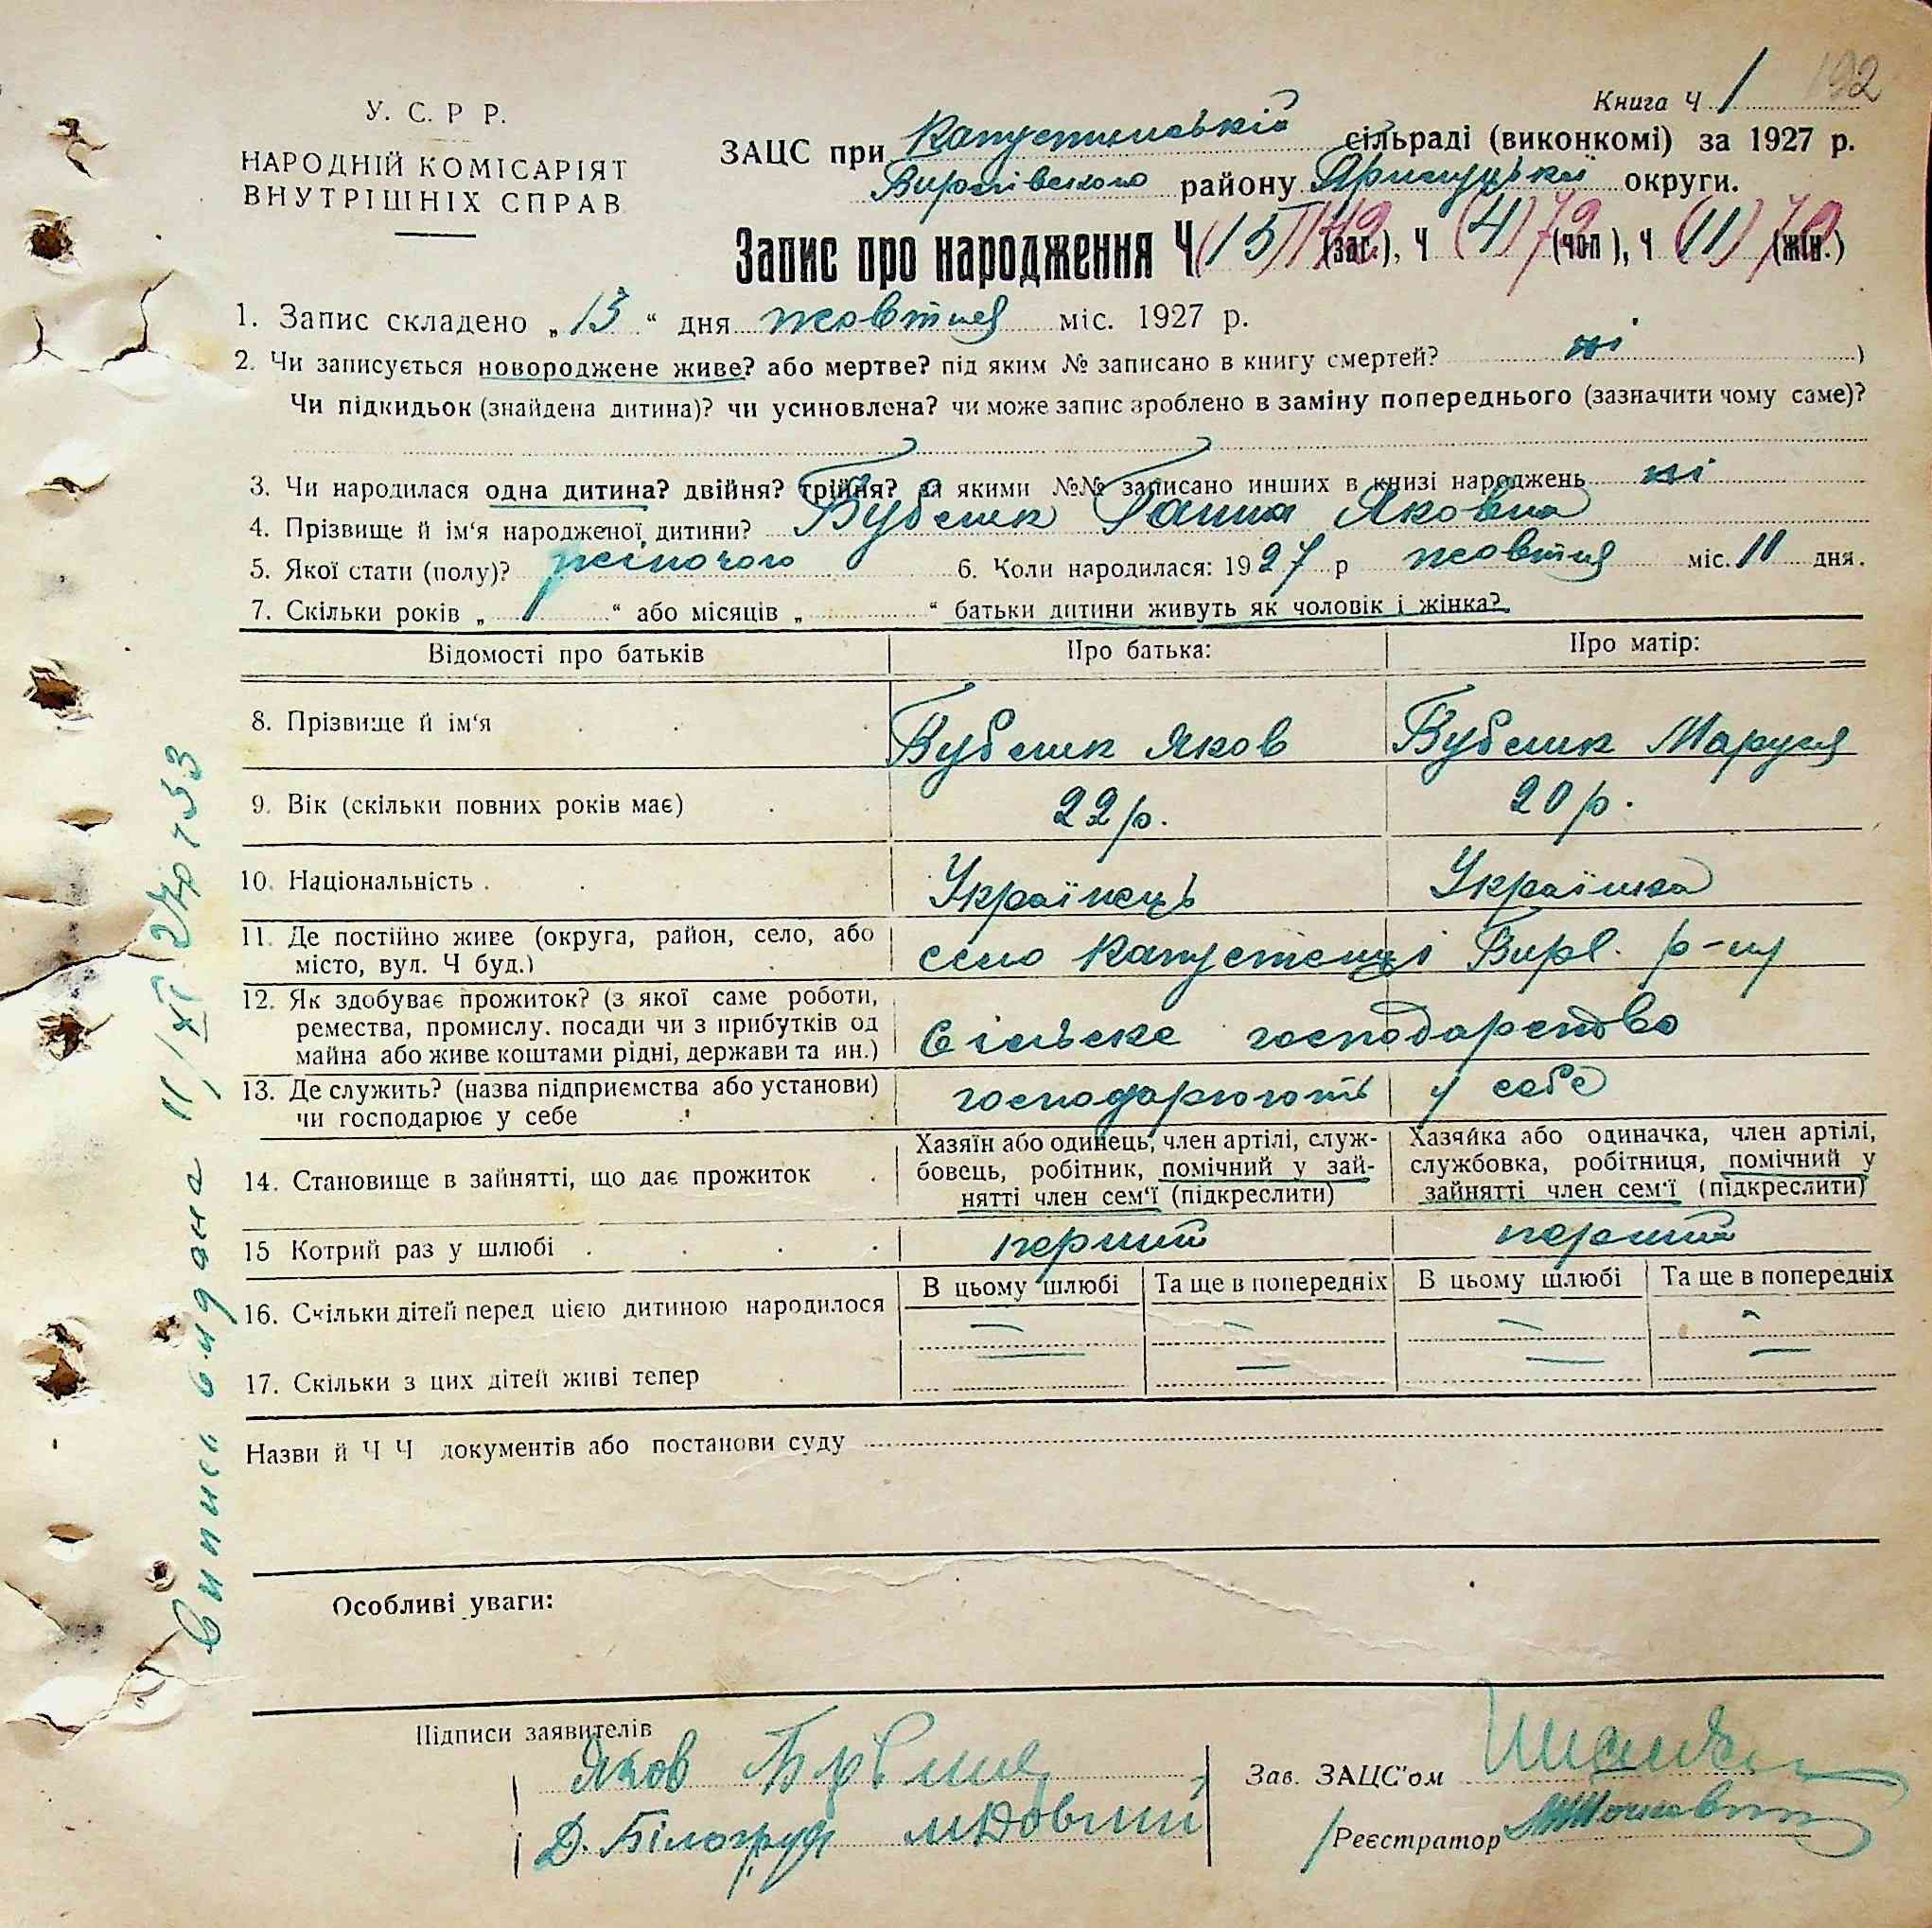 192
У. С. Р Р.
НАРОДНІЙ КОМІСАРІЯТ
ВНУТРІШНІХ СПРАВ
Книга Ч 1
ЗАЦС при Капустинській сільраді (виконкомі) за 1927 р.
району Прилуцької округи.
Запис про народження Ч (15) (зас.), Ч (4) 72 (чол), Ч (11) 70 (жін.)
1. Запис складено „13“ дня жовтня міс. 1927 р.
2. Чи записується новороджене живе? або мертве? під яким № записано в книгу смертей? ні )
Чи підкидьок (знайдена дитина)? чи усиновлена? чи може запис зроблено в заміну попереднього (зазначити чому саме)?
3. Чи народилася одна дитина? двійня? трійня? за якими №№ записано инших в книзі народжень ні
4. Прізвище й ім'я народженої дитини? Бублик Ганна Яковна
5. Якої стати (полу)? жіночого 6. Коли народилася: 1927 р жовтня міс. 11 дня.
7. Скільки років „1“ або місяців „ “ батьки дитини живуть як чоловік і жінка?
Відомості про батьків Про батька: Про матір:
8. Прізвище й ім'я Бублик Яков Бублик Маруся
9. Вік (скільки повних років має) 22 р. 20 р.
10. Національність Українець Українка
11. Де постійно живе (округа, район, село, або
місто, вул. Ч буд.) село Капустенці р-ну
12. Як здобуває прожиток? (з якої саме роботи,
ремества, промислу. посади чи з прибутків од
майна або живе коштами рідні, держави та ин.) Сільське господарство
13. Де служить? (назва підприємства або установи)
чи господарює у себе господарюють у себе
14. Становище в зайнятті, що дає прожиток
Хазяїн або одинець, член артілі, служ-
бовець, робітник, помічний у зай-
нятті член сем'ї (підкреслити)
Хазяйка або одиначка, член артілі,
службовка, робітниця, помічний у
зайнятті член сем'ї (підкреслити)
15 Котрий раз у шлюбі перший перший
В цьому шлюбі Та ще в попередніх В цьому шлюбі Та ще в попередніх
16. Скільки дітей перед цією дитиною народилося — — — —
17. Скільки з цих дітей живі тепер — — — —
Назви й Ч Ч документів або постанови суду
Особливі уваги:
Підписи заявителів
Яков
Д. Білогруд М Довгий
Зав. ЗАЦС'ом
Реєстратор
Випись видана 11/XI 27р